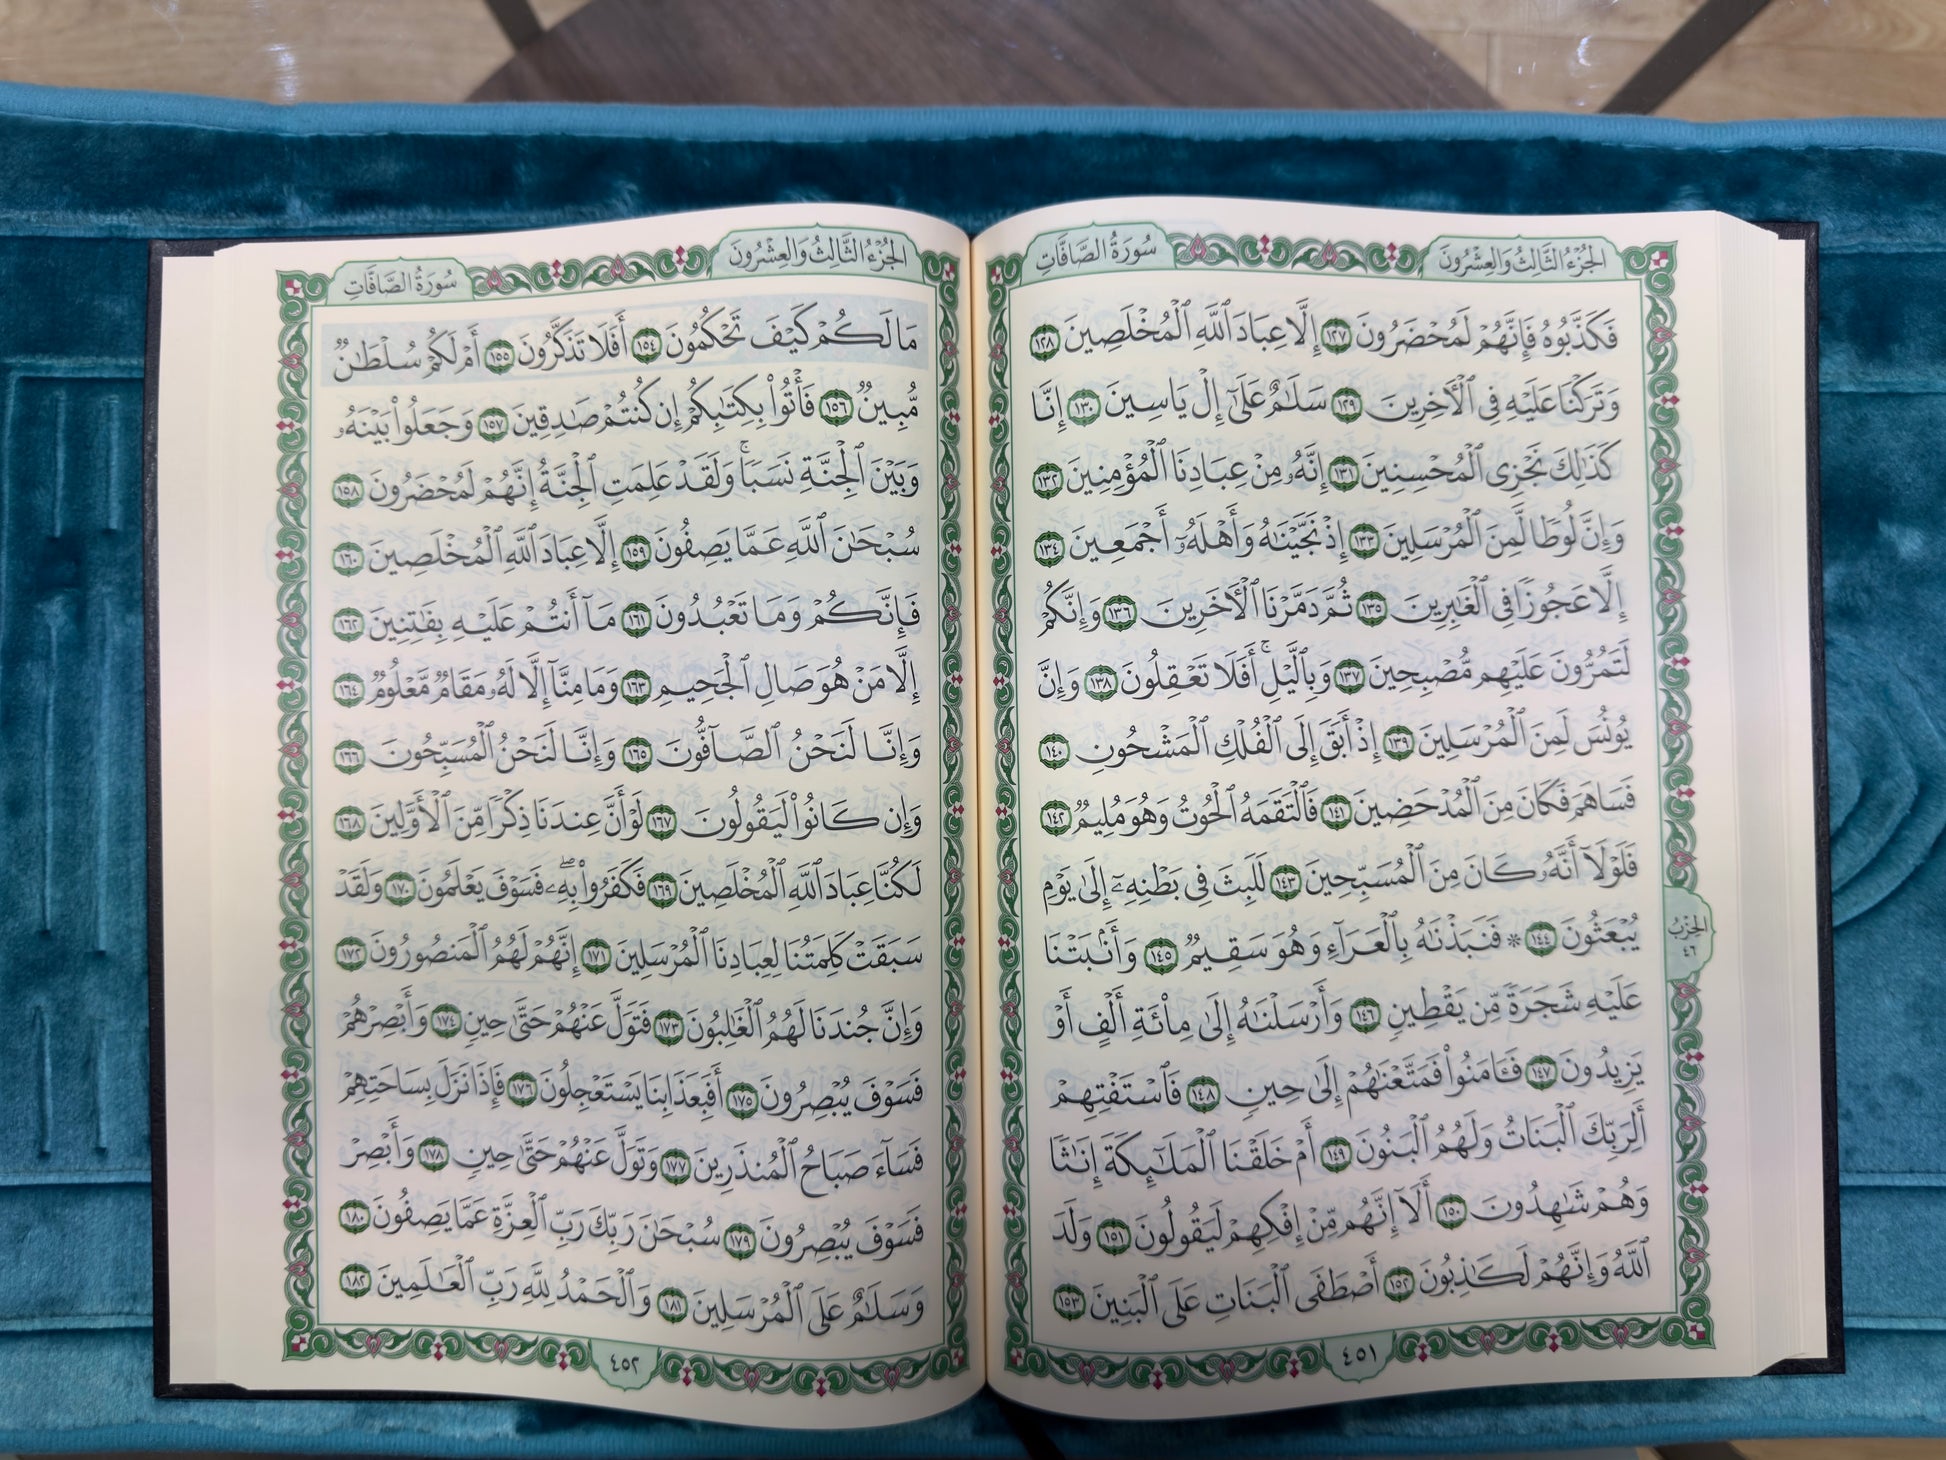 الجُزْءُ الثَّالِثُ وَالعِشْرُونَ
سُورَةُ الصَّافَّاتِ
فَكَذَّبُوهُ فَإِنَّهُمْ لَمُحْضَرُونَ ١٢٧ إِلَّا عِبَادَ ٱللَّهِ ٱلْمُخْلَصِينَ ١٢٨
وَتَرَكْنَا عَلَيْهِ فِى ٱلْأَخِرِينَ ١٢٩ سَلَٰمٌ عَلَىٰٓ إِلْ يَاسِينَ ١٣٠ إِنَّا
كَذَٰلِكَ نَجْزِى ٱلْمُحْسِنِينَ ١٣١ إِنَّهُۥ مِنْ عِبَادِنَا ٱلْمُؤْمِنِينَ ١٣٢
وَإِنَّ لُوطًا لَّمِنَ ٱلْمُرْسَلِينَ ١٣٣ إِذْ نَجَّيْنَٰهُ وَأَهْلَهُۥٓ أَجْمَعِينَ ١٣٤
إِلَّا عَجُوزًا فِى ٱلْغَٰبِرِينَ ١٣٥ ثُمَّ دَمَّرْنَا ٱلْأَخَرِينَ ١٣٦ وَإِنَّكُمْ
لَتَمُرُّونَ عَلَيْهِم مُّصْبِحِينَ ١٣٧ وَبِٱلَّيْلِ ۚ أَفَلَا تَعْقِلُونَ ١٣٨ وَإِنَّ
يُونُسَ لَمِنَ ٱلْمُرْسَلِينَ ١٣٩ إِذْ أَبَقَ إِلَى ٱلْفُلْكِ ٱلْمَشْحُونِ ١٤٠
فَسَاهَمَ فَكَانَ مِنَ ٱلْمُدْحَضِينَ ١٤١ فَٱلْتَقَمَهُ ٱلْحُوتُ وَهُوَ مُلِيمٌ ١٤٢
فَلَوْلَآ أَنَّهُۥ كَانَ مِنَ ٱلْمُسَبِّحِينَ ١٤٣ لَلَبِثَ فِى بَطْنِهِۦٓ إِلَىٰ يَوْمِ
يُبْعَثُونَ ١٤٤ * فَنَبَذْنَٰهُ بِٱلْعَرَآءِ وَهُوَ سَقِيمٌ ١٤٥ وَأَنۢبَتْنَا
عَلَيْهِ شَجَرَةً مِّن يَقْطِينٍ ١٤٦ وَأَرْسَلْنَٰهُ إِلَىٰ مِا۟ئَةِ أَلْفٍ أَوْ
يَزِيدُونَ ١٤٧ فَـَٔامَنُوا۟ فَمَتَّعْنَٰهُمْ إِلَىٰ حِينٍ ١٤٨ فَٱسْتَفْتِهِمْ
أَلِرَبِّكَ ٱلْبَنَاتُ وَلَهُمُ ٱلْبَنُونَ ١٤٩ أَمْ خَلَقْنَا ٱلْمَلَٰٓئِكَةَ إِنَٰثًا
وَهُمْ شَٰهِدُونَ ١٥٠ أَلَآ إِنَّهُم مِّنْ إِفْكِهِمْ لَيَقُولُونَ ١٥١ وَلَدَ
ٱللَّهُ وَإِنَّهُمْ لَكَٰذِبُونَ ١٥٢ أَصْطَفَى ٱلْبَنَاتِ عَلَى ٱلْبَنِينَ ١٥٣
الحِزْبُ
٤٦
٤٥١
الجُزْءُ الثَّالِثُ وَالعِشْرُونَ
سُورَةُ الصَّافَّاتِ
مَا لَكُمْ كَيْفَ تَحْكُمُونَ ١٥٤ أَفَلَا تَذَكَّرُونَ ١٥٥ أَمْ لَكُمْ سُلْطَٰنٌ
مُّبِينٌ ١٥٦ فَأْتُوا۟ بِكِتَٰبِكُمْ إِن كُنتُمْ صَٰدِقِينَ ١٥٧ وَجَعَلُوا۟ بَيْنَهُۥ
وَبَيْنَ ٱلْجِنَّةِ نَسَبًا ۚ وَلَقَدْ عَلِمَتِ ٱلْجِنَّةُ إِنَّهُمْ لَمُحْضَرُونَ ١٥٨
سُبْحَٰنَ ٱللَّهِ عَمَّا يَصِفُونَ ١٥٩ إِلَّا عِبَادَ ٱللَّهِ ٱلْمُخْلَصِينَ ١٦٠
فَإِنَّكُمْ وَمَا تَعْبُدُونَ ١٦١ مَآ أَنتُمْ عَلَيْهِ بِفَٰتِنِينَ ١٦٢
إِلَّا مَنْ هُوَ صَالِ ٱلْجَحِيمِ ١٦٣ وَمَا مِنَّآ إِلَّا لَهُۥ مَقَامٌ مَّعْلُومٌ ١٦٤
وَإِنَّا لَنَحْنُ ٱلصَّآفُّونَ ١٦٥ وَإِنَّا لَنَحْنُ ٱلْمُسَبِّحُونَ ١٦٦
وَإِن كَانُوا۟ لَيَقُولُونَ ١٦٧ لَوْ أَنَّ عِندَنَا ذِكْرًا مِّنَ ٱلْأَوَّلِينَ ١٦٨
لَكُنَّا عِبَادَ ٱللَّهِ ٱلْمُخْلَصِينَ ١٦٩ فَكَفَرُوا۟ بِهِۦ ۖ فَسَوْفَ يَعْلَمُونَ ١٧٠ وَلَقَدْ
سَبَقَتْ كَلِمَتُنَا لِعِبَادِنَا ٱلْمُرْسَلِينَ ١٧١ إِنَّهُمْ لَهُمُ ٱلْمَنصُورُونَ ١٧٢
وَإِنَّ جُندَنَا لَهُمُ ٱلْغَٰلِبُونَ ١٧٣ فَتَوَلَّ عَنْهُمْ حَتَّىٰ حِينٍ ١٧٤ وَأَبْصِرْهُمْ
فَسَوْفَ يُبْصِرُونَ ١٧٥ أَفَبِعَذَابِنَا يَسْتَعْجِلُونَ ١٧٦ فَإِذَا نَزَلَ بِسَاحَتِهِمْ
فَسَآءَ صَبَاحُ ٱلْمُنذَرِينَ ١٧٧ وَتَوَلَّ عَنْهُمْ حَتَّىٰ حِينٍ ١٧٨ وَأَبْصِرْ
فَسَوْفَ يُبْصِرُونَ ١٧٩ سُبْحَٰنَ رَبِّكَ رَبِّ ٱلْعِزَّةِ عَمَّا يَصِفُونَ ١٨٠
وَسَلَٰمٌ عَلَى ٱلْمُرْسَلِينَ ١٨١ وَٱلْحَمْدُ لِلَّهِ رَبِّ ٱلْعَٰلَمِينَ ١٨٢
٤٥٢